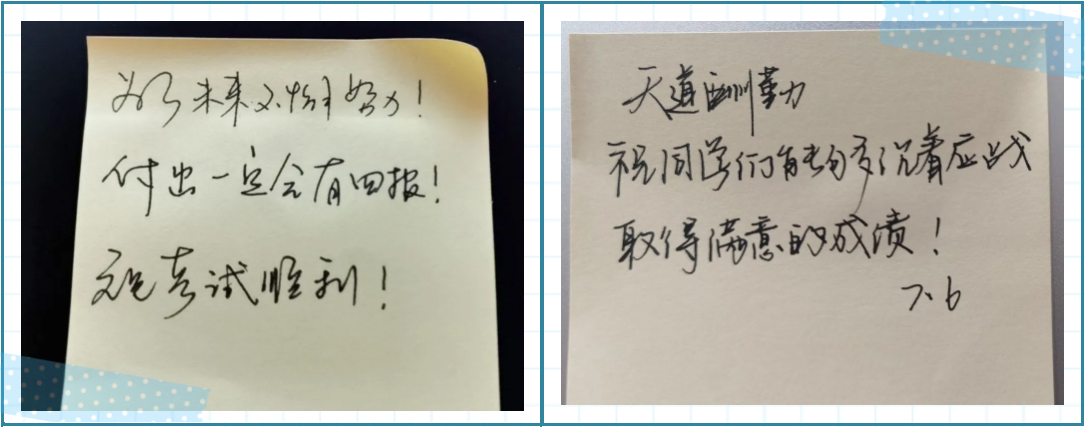 为了未来不懈努力！
付出一定会有回报！
祝考试顺利！
天道酬勤
祝同学们能够沉着应战
取得满意的成绩！
7.6